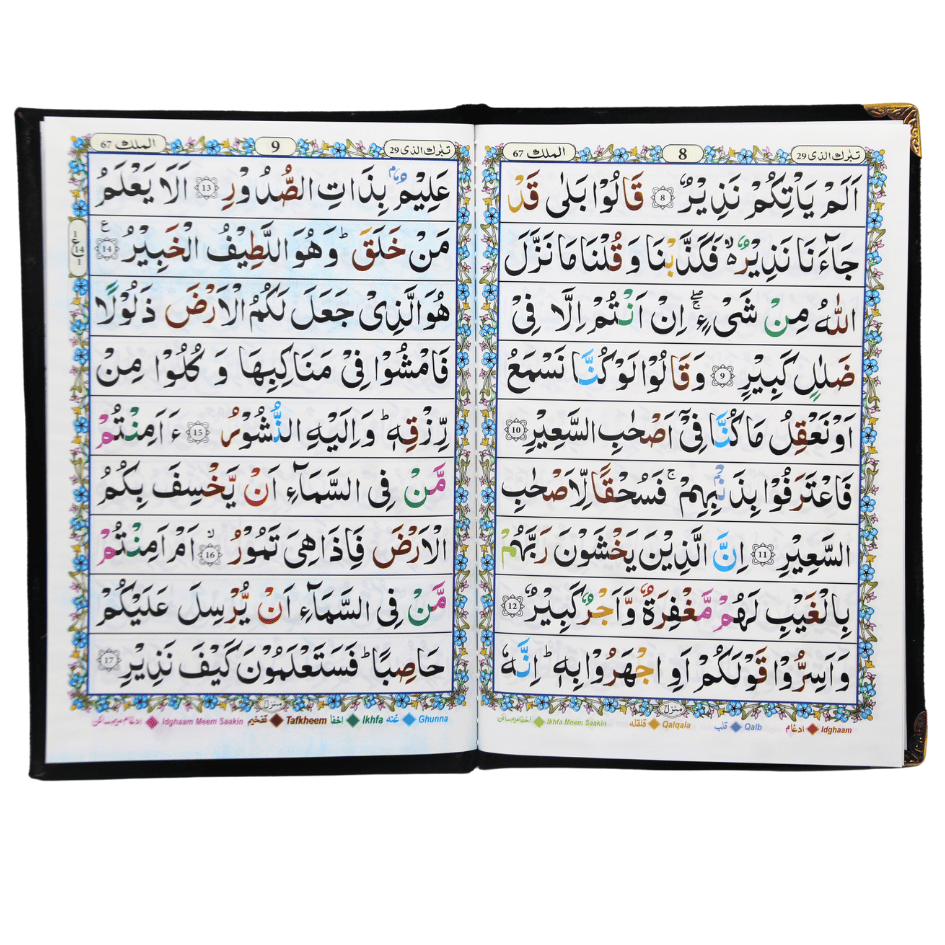 تبٰرك الذی 29
8
الملك 67
اَلَمْ يَاْتِكُمْ نَذِيْرٌ ۝8 قَالُوْا بَلٰى قَدْ
جَآءَنَا نَذِيْرٌ ۙ فَكَذَّبْنَا وَ قُلْنَا مَا نَزَّلَ
اللّٰهُ مِنْ شَیْءٍ ۖۚ اِنْ اَنْتُمْ اِلَّا فِیْ
ضَلٰلٍ كَبِيْرٍ ۝9 وَقَالُوْا لَوْ كُنَّا نَسْمَعُ
اَوْ نَعْقِلُ مَا كُنَّا فِیْۤ اَصْحٰبِ السَّعِيْرِ ۝10
فَاعْتَرَفُوْا بِذَنْۢبِهِمْ ۚ فَسُحْقًا لِّاَصْحٰبِ
السَّعِيْرِ ۝11 اِنَّ الَّذِيْنَ يَخْشَوْنَ رَبَّهُمْ
بِالْغَيْبِ لَهُمْ مَّغْفِرَةٌ وَّاَجْرٌ كَبِيْرٌ ۝12
وَاَسِرُّوْا قَوْلَكُمْ اَوِ اجْهَرُوْا بِهٖ ؕ اِنَّهٗ
منزل
Idghaam ادغام Qalb قلب Qalqala قلقله Ikhfa Meem Saakin اخفا میم ساکن
تبٰرك الذی 29
9
الملك 67
عَلِيْمٌۢ بِذَاتِ الصُّدُوْرِ ۝13 اَلَا يَعْلَمُ
مَنْ خَلَقَ ؕ وَهُوَ اللَّطِيْفُ الْخَبِيْرُ ۝14 ع
1
ع 14
1
هُوَ الَّذِیْ جَعَلَ لَكُمُ الْاَرْضَ ذَلُوْلًا
فَامْشُوْا فِیْ مَنَاكِبِهَا وَ كُلُوْا مِنْ
رِّزْقِهٖ ؕ وَاِلَيْهِ النُّشُوْرُ ۝15 ءَاَمِنْتُمْ
مَّنْ فِی السَّمَآءِ اَنْ يَّخْسِفَ بِكُمُ
الْاَرْضَ فَاِذَا هِیَ تَمُوْرُ ۙ۝16 اَمْ اَمِنْتُمْ
مَّنْ فِی السَّمَآءِ اَنْ يُّرْسِلَ عَلَيْكُمْ
حَاصِبًا ؕ فَسَتَعْلَمُوْنَ كَيْفَ نَذِيْرِ ۝17
منزل
Ghunna غنه Ikhfa اخفا Tafkheem تفخيم Idghaam Meem Saakin ادغام میم ساکن